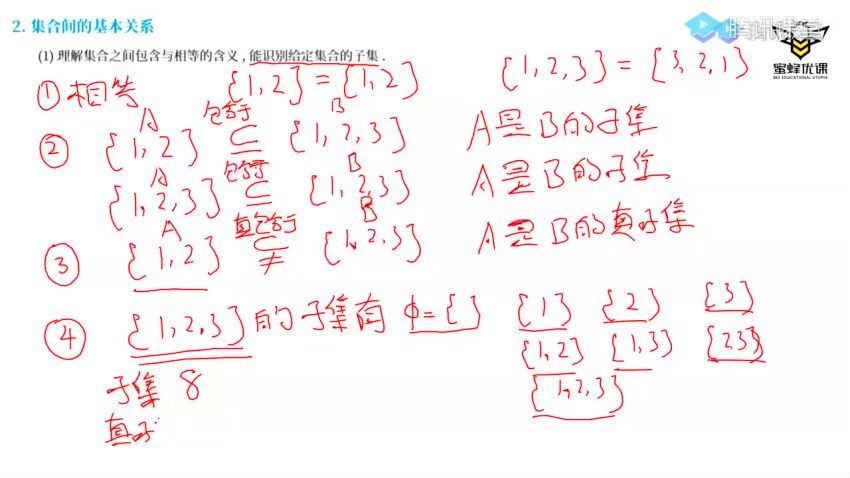 2. 集合间的基本关系
腾讯课堂
(1) 理解集合之间包含与相等的含义，能识别给定集合的子集.
蜜蜂优课
BEE EDUCATIONAL UTOPIA
① 相等 {1,2}={1,2} {1,2,3}={3,2,1}
A 包含于 B
② {1,2} ⊆ {1,2,3} A是B的子集
A 包含于 B
{1,2,3} ⊆ {1,2,3} A是B的子集
A 真包含于 B
③ {1,2} ⫋ {1,2,3} A是B的真子集
④ {1,2,3}的子集有 ϕ={} {1} {2} {3}
{1,2} {1,3} {23}
{1,2,3}
子集 8
真子